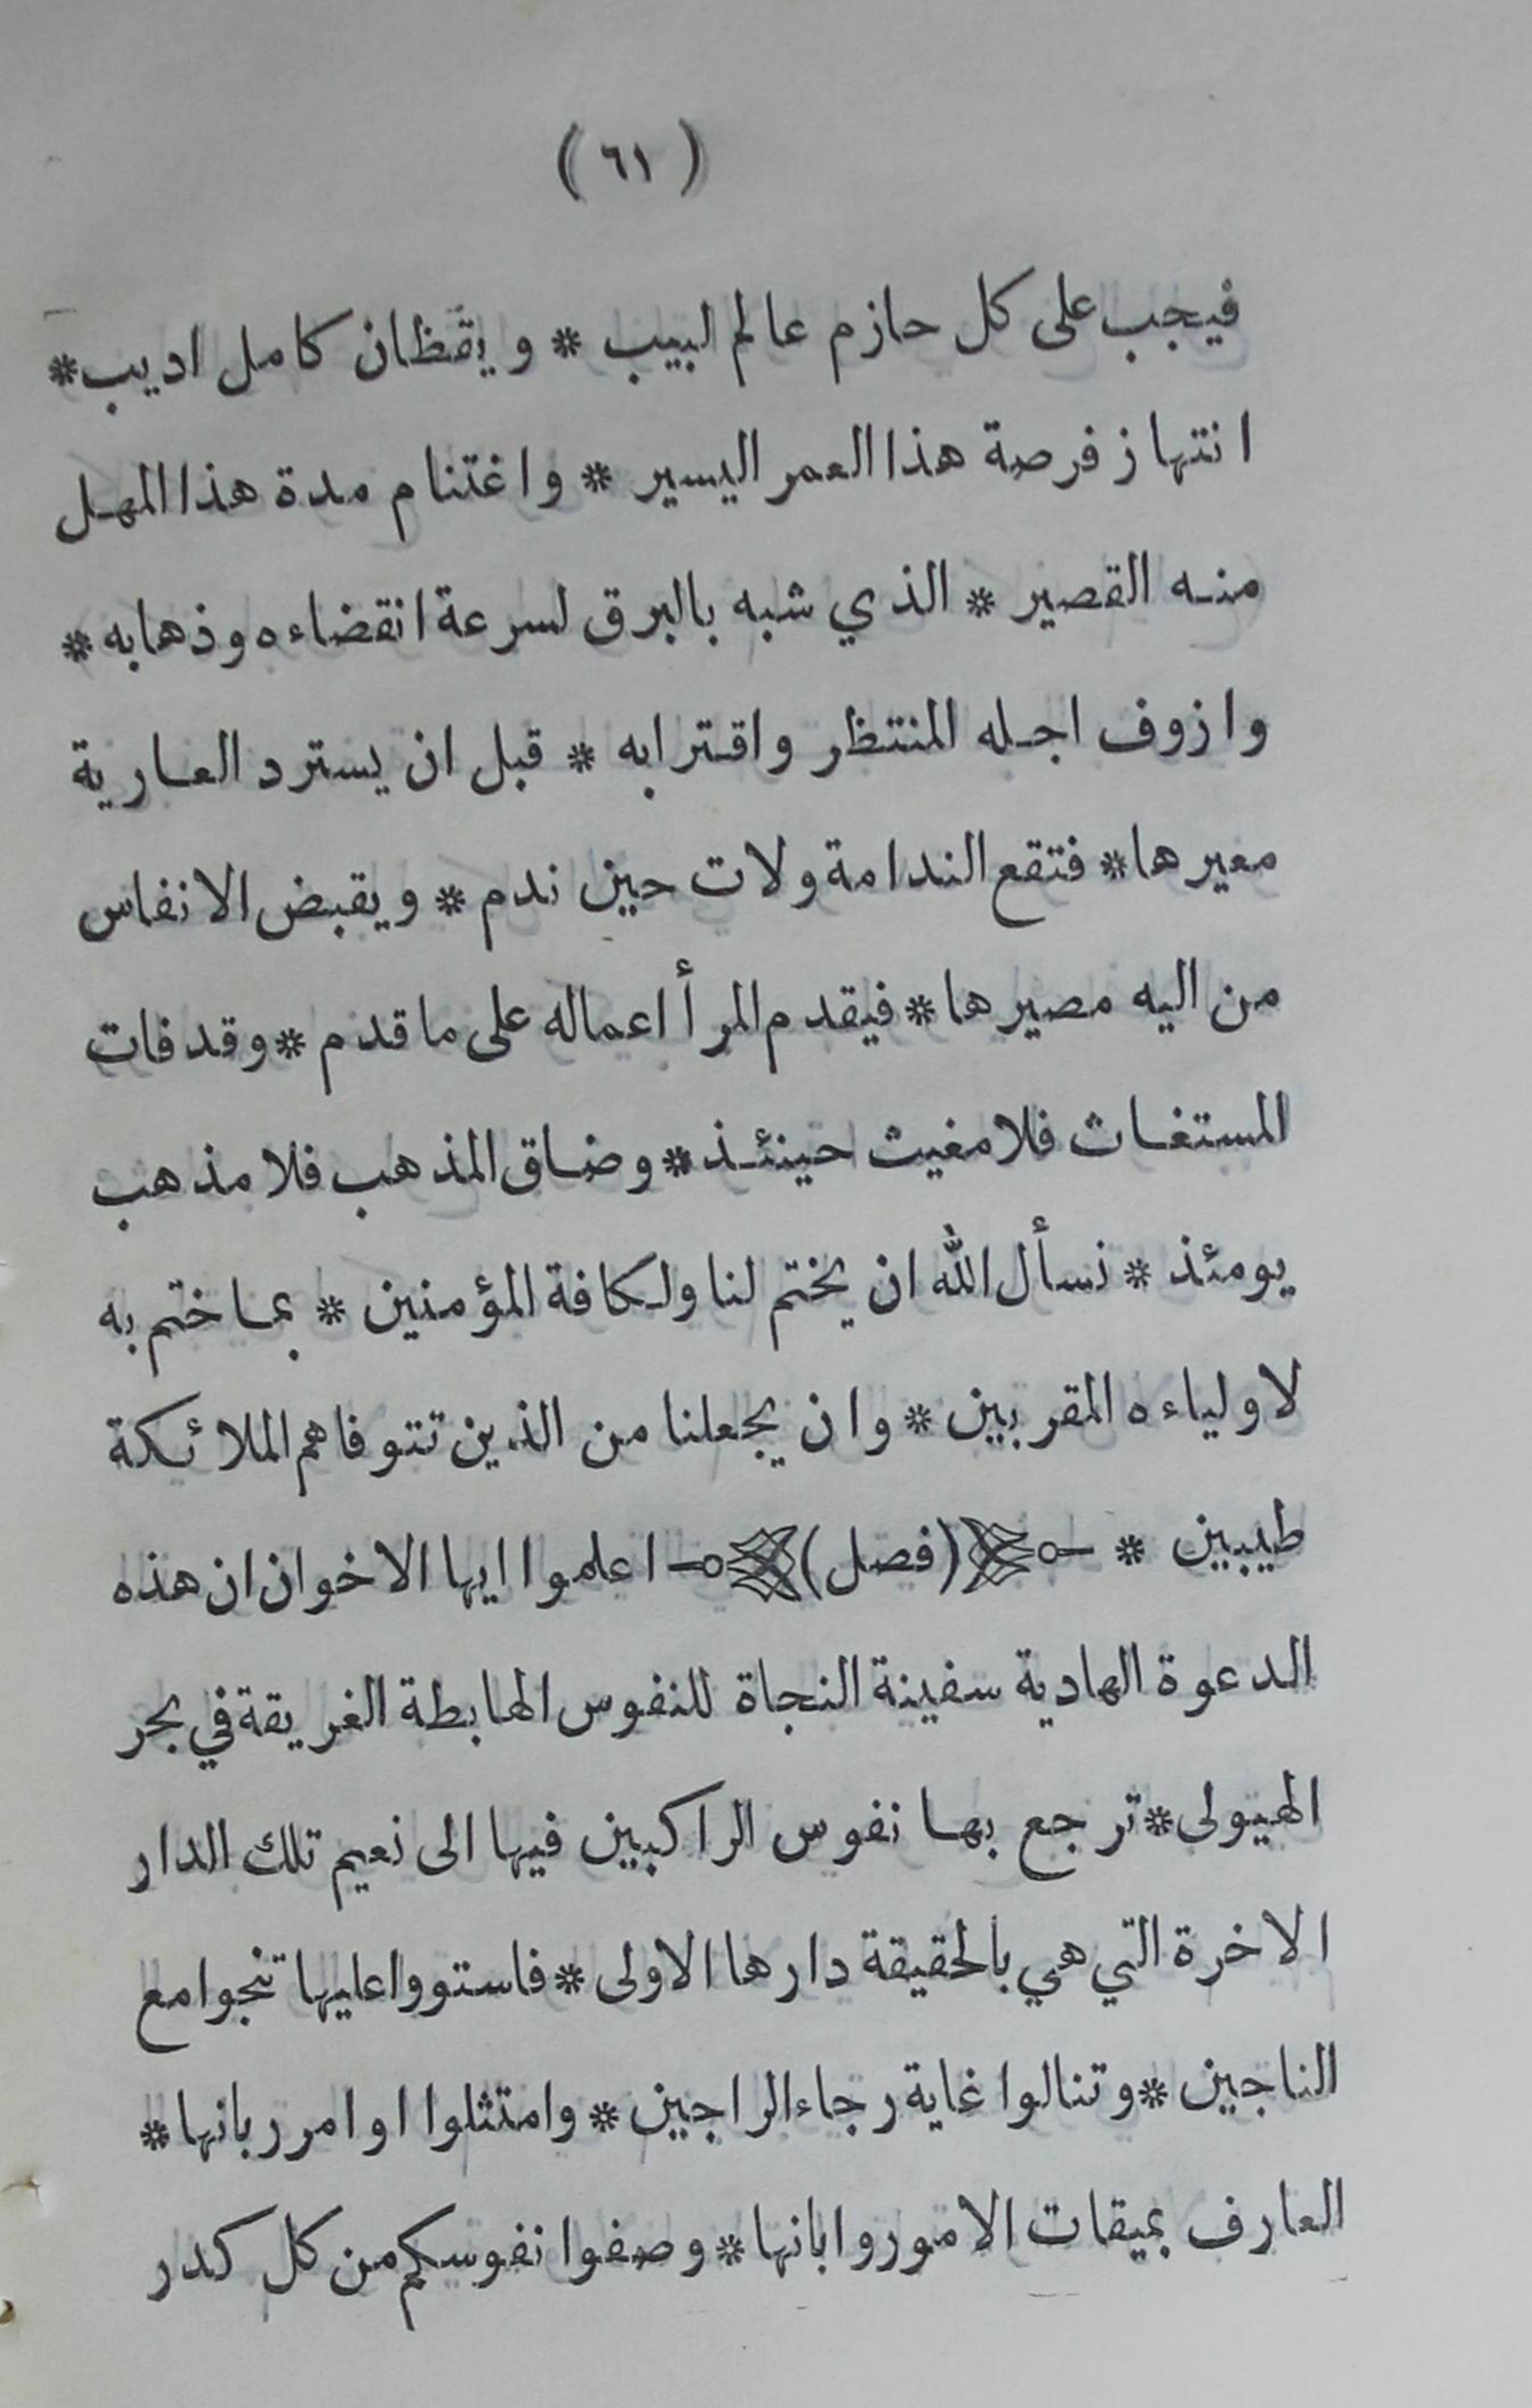 ( ٦١ )
فيجب على كل حازم عالم لبيب * ويقظان كامل اديب *
انتهاز فرصة هذا العمر اليسير * واغتنام مدة هذا المهل
منه القصير * الذي شبه بالبرق لسرعة انقضاءه وذهابه *
وازوف اجله المنتظر واقترابه * قبل ان يسترد العارية
معيرها * فتقع الندامة ولات حين ندم * ويقبض الانفاس
من اليه مصيرها * فيقدم المرأ اعماله على ما قدم * وقد فات
المستغاث فلا مغيث حينئذ * وضاق المذهب فلا مذهب
يومئذ * نسأل الله ان يختم لنا ولكافة المؤمنين * بما ختم به
لاولياءه المقربين * وان يجعلنا من الذين تتوفاهم الملائكة
طيبين * (فصل) اعلموا ايها الاخوان ان هذه
الدعوة الهادية سفينة النجاة للنفوس الهابطة الغريقة في بحر
الهيولى * ترجع بها نفوس الراكبين فيها الى نعيم تلك الدار
الاخرة التي هي بالحقيقة دارها الاولى * فاستووا عليها تنجوا مع
الناجين * وتنالوا غاية رجاء الراجين * وامتثلوا اوامر ربانها *
العارف بميقات الامور وابانها * وصفوا نفوسكم من كل كدر